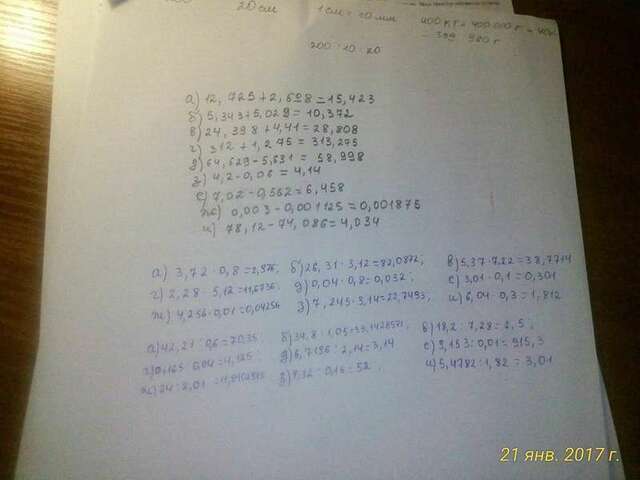 20 см 1 см = 10 мм 400 кг = 400 000 г
200 : 10 = 20
а) 12,725 + 2,698 = 15,423
б) 5,343 + 5,029 = 10,372
в) 24,398 + 4,41 = 28,808
г) 312 + 1,275 = 313,275
д) 64,629 - 5,631 = 58,998
з) 4,2 - 0,06 = 4,14
е) 7,02 - 0,562 = 6,458
ж) 0,003 - 0,001125 = 0,001875
и) 78,12 - 74,086 = 4,034
а) 3,72 · 0,8 = 2,976; б) 26,31 · 3,12 = 82,0872; в) 5,37 · 7,22 = 38,7714
г) 2,28 · 5,12 = 11,6736 д) 0,04 · 0,8 = 0,032; е) 3,01 · 0,1 = 0,301
ж) 4,256 · 0,01 = 0,04256 з) 7,245 · 3,14 = 22,7493; и) 6,04 · 0,3 = 1,812
а) 42,21 : 0,6 = 70,35; б) 34,8 : 1,05 = 33,1428571; в) 18,2 : 7,28 = 2,5;
г) 0,165 : 0,04 = 4,125; д) 6,7196 : 2,14 = 3,14 е) 9,153 : 0,01 = 915,3
ж) 24 : 2,01 = з) 8,32 : 0,16 = 52; и) 5,4782 : 1,82 = 3,01
21 янв. 2017 г.